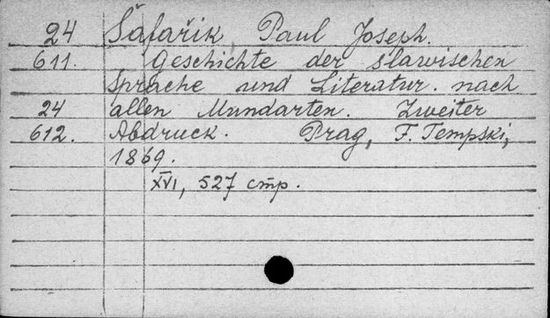 24 Šafařik Paul Joseph.
611. Geschichte der slawischen
Sprache und Literatur nach
24 allen Mundarten. Zweiter
612. Abdruck. Prag, F. Tempski,
1869.
XVI, 527 cmp.